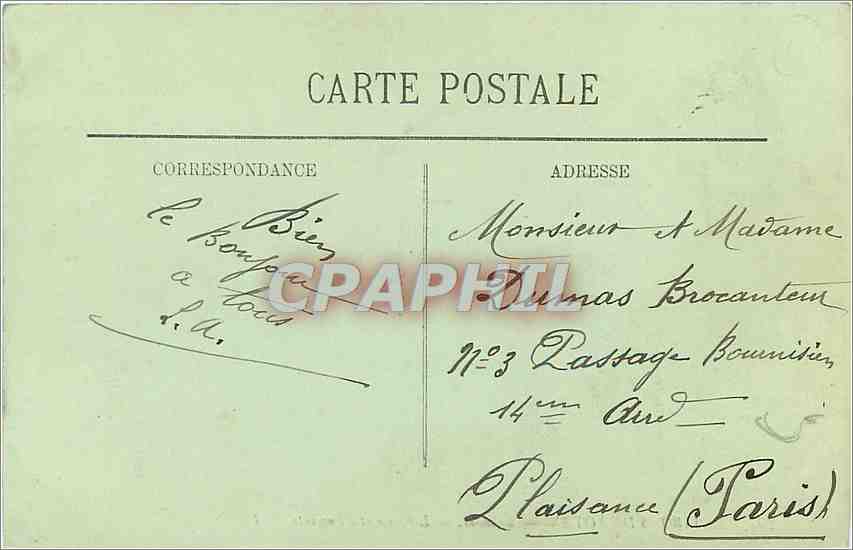 CARTE POSTALE
CORRESPONDANCE
Bien
le Bonjour
a tous
L.A.
ADRESSE
Monsieur et Madame
Dumas Brocanteur
No 3 Passage Bournisien
14em Arrd
Plaisance (Paris)
CPAPHIL